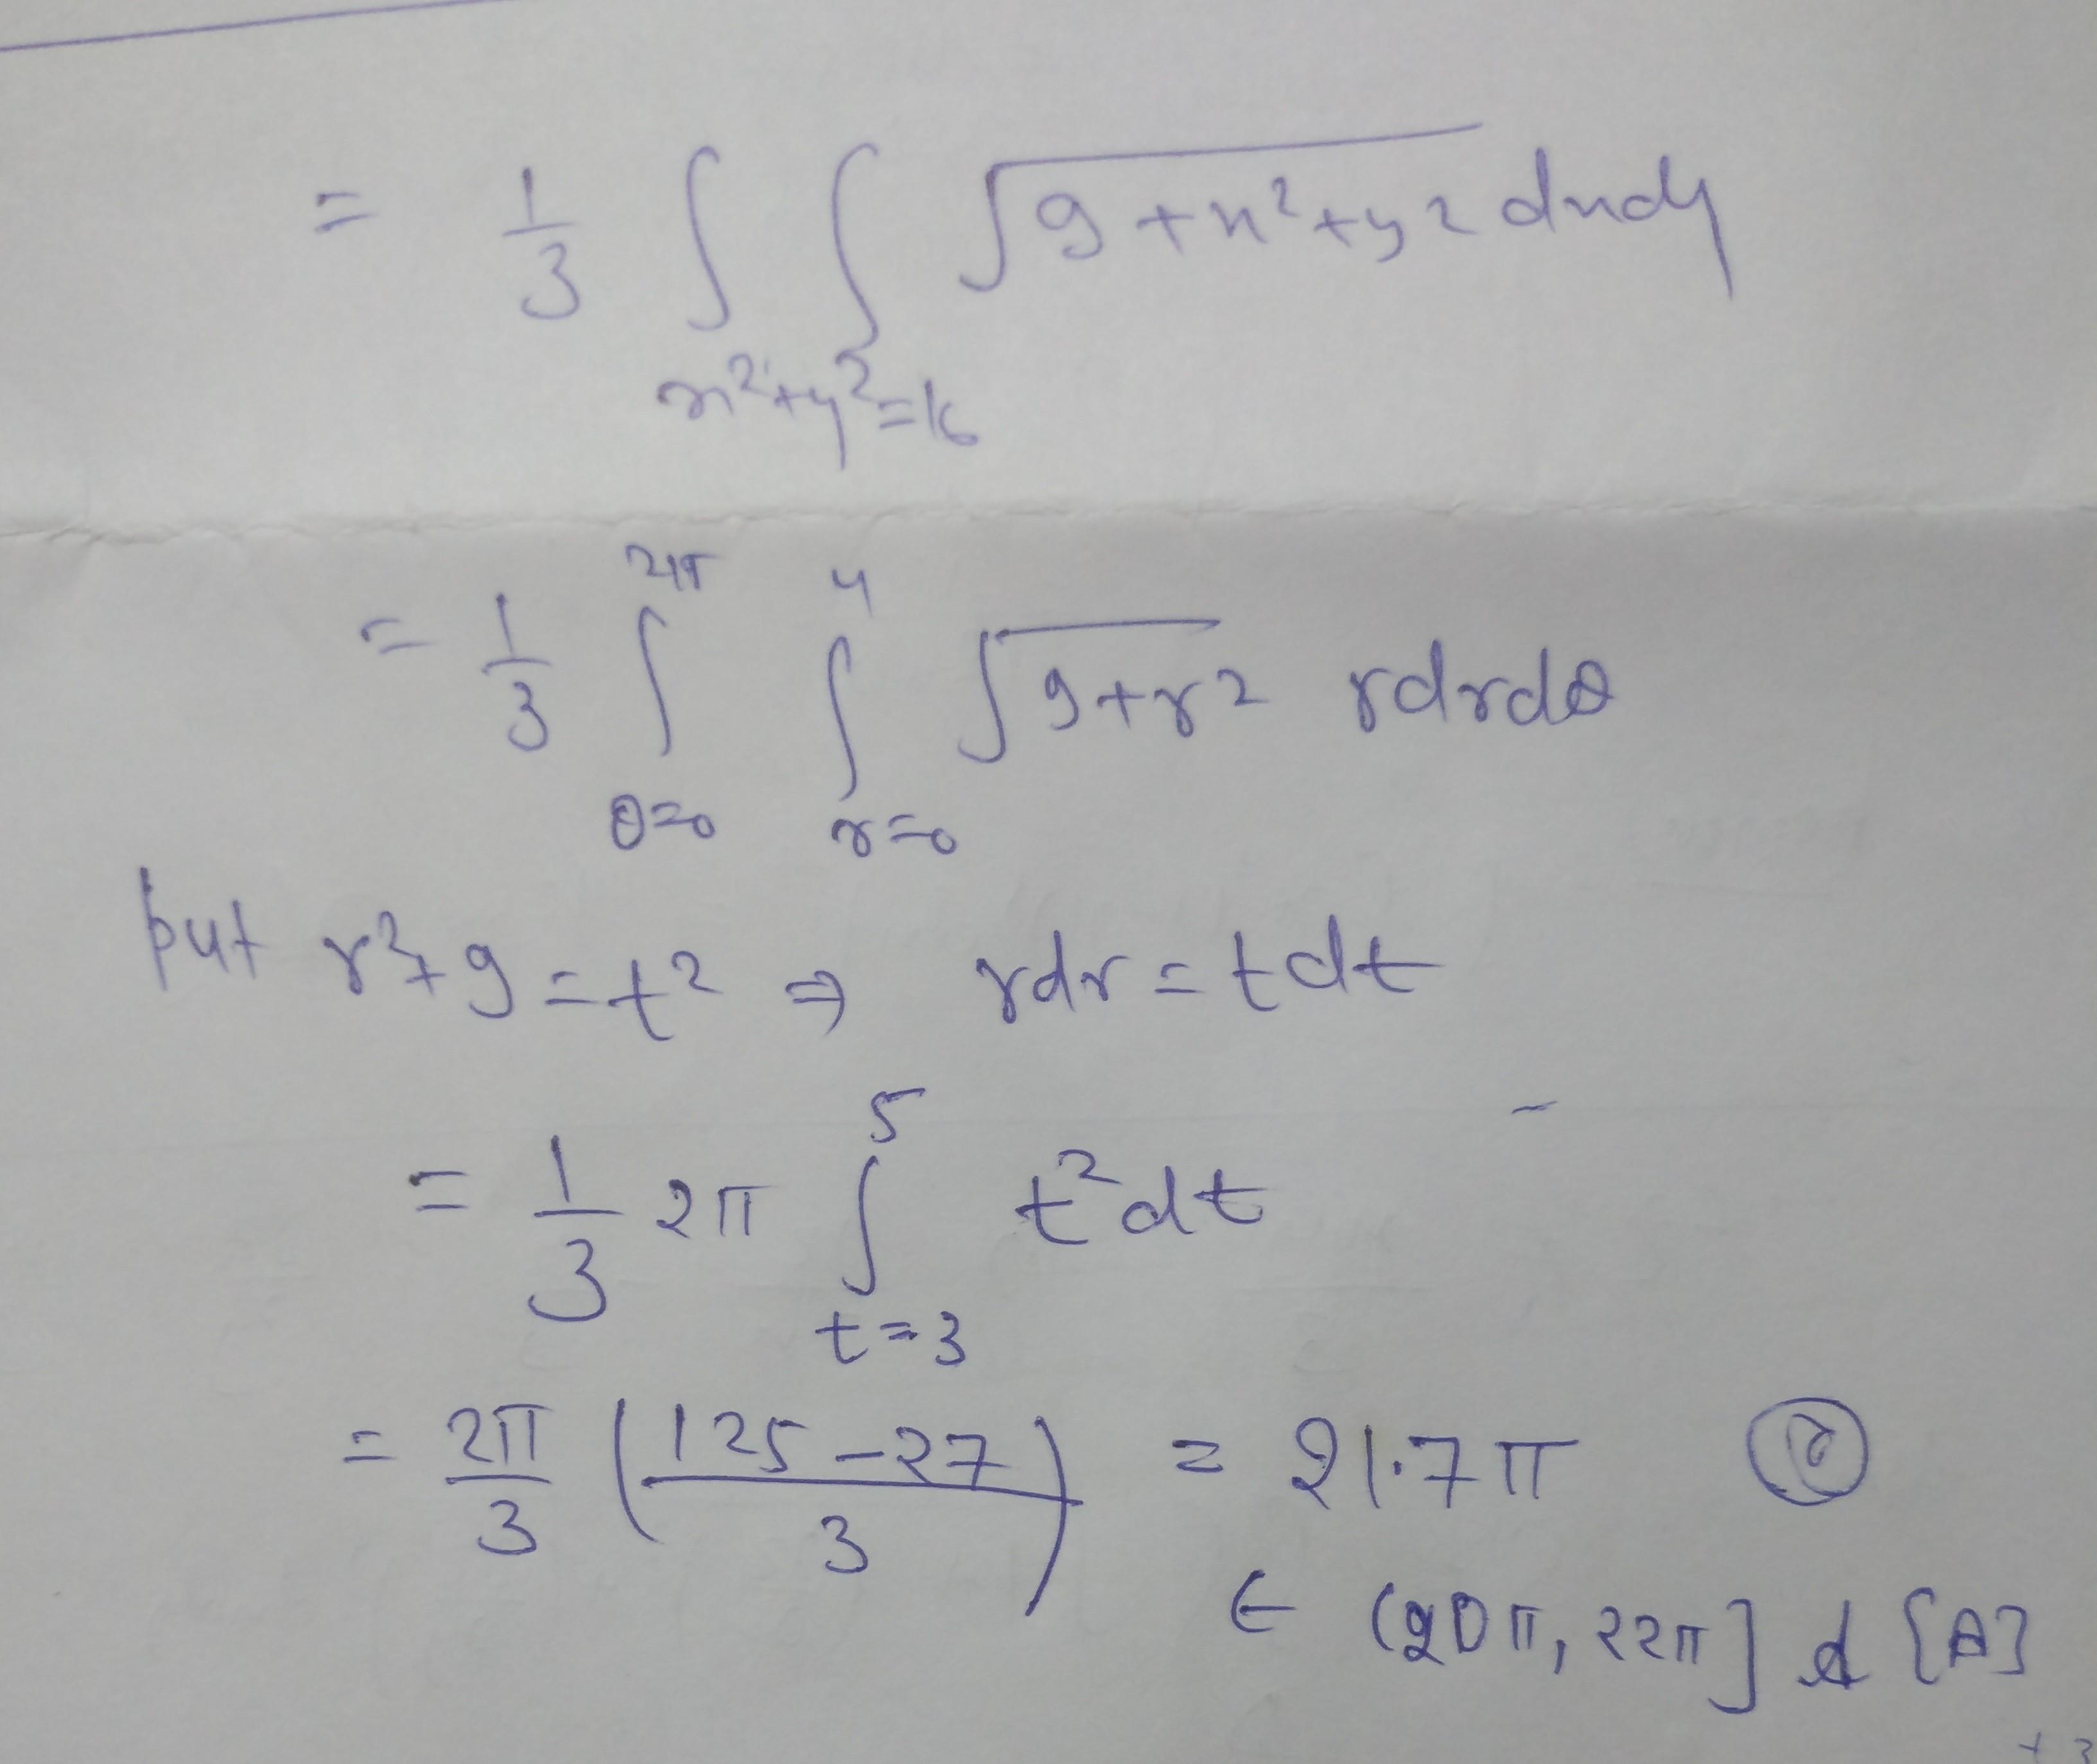 = 1/3 ∫∫ √(9+x²+y²) dxdy
x²+y²=16
= 1/3 ∫_{θ=0}^{2π} ∫_{r=0}^{4} √(9+r²) rdrdθ
put r²+9=t² ⇒ rdr=tdt
= 1/3 2π ∫_{t=3}^{5} t²dt
= 2π/3 ((125-27)/3) = 21.7π
∈ (20π, 22π] [A]